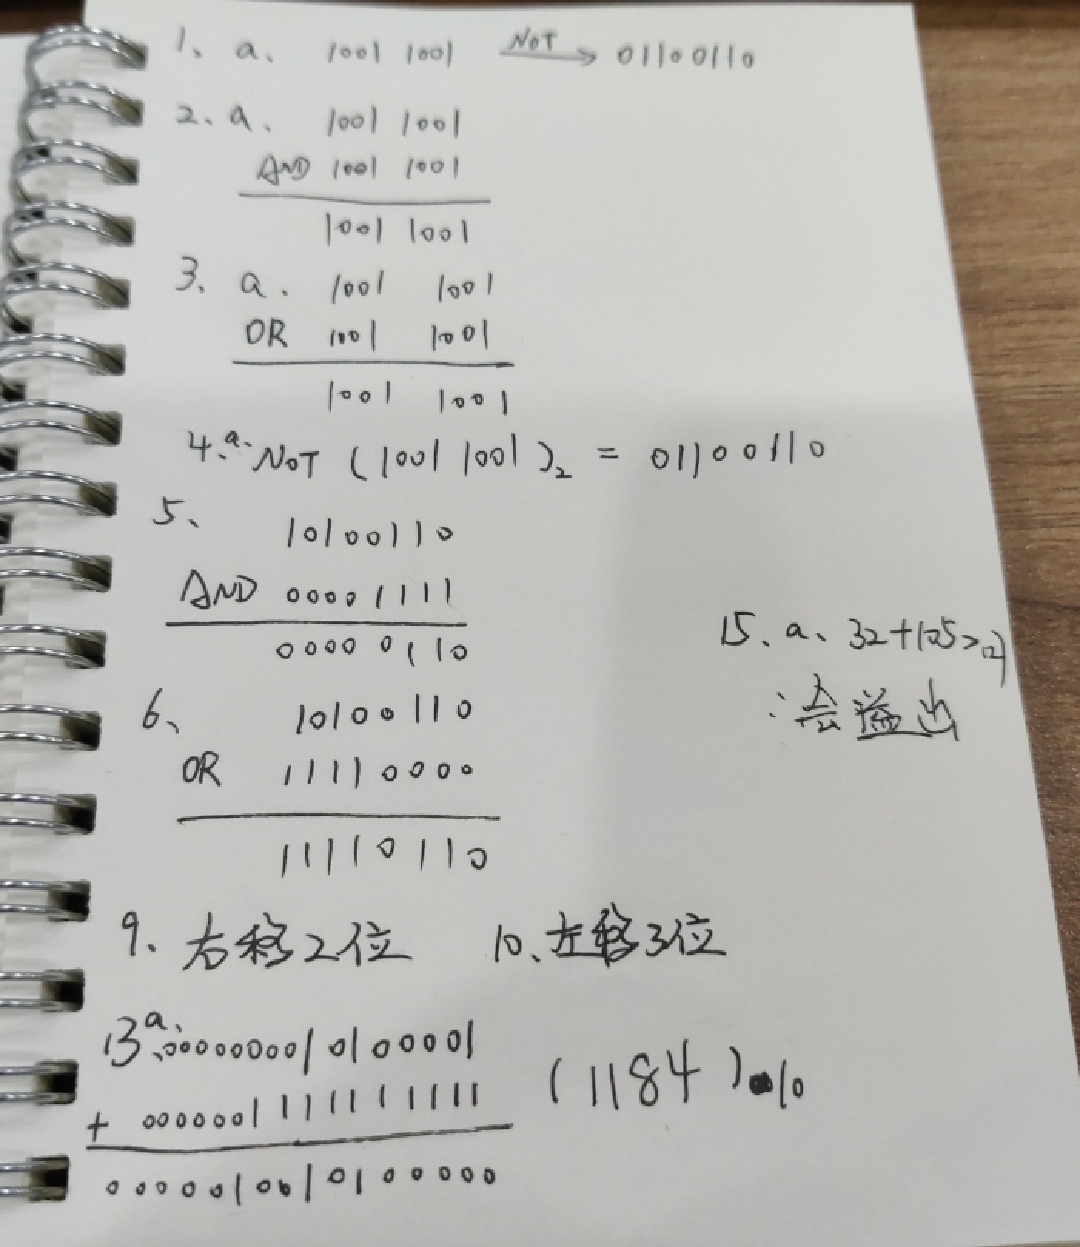 1、a、 1001 1001 NOT → 01100110
2、a、 1001 1001
AND 1001 1001
1001 1001
3、a. 1001 1001
OR 1001 1001
1001 1001
4.a. NOT (1001 1001)₂ = 01100110
5、 10100110
AND 00001111
00000110
6、 10100110
OR 11110000
11110110
9. 右移2位 10、左移3位
13a、000000001010 0001
+ 0000001111111111
0000010010100000
(1184)10
15、a、32+105>127
∴会溢出